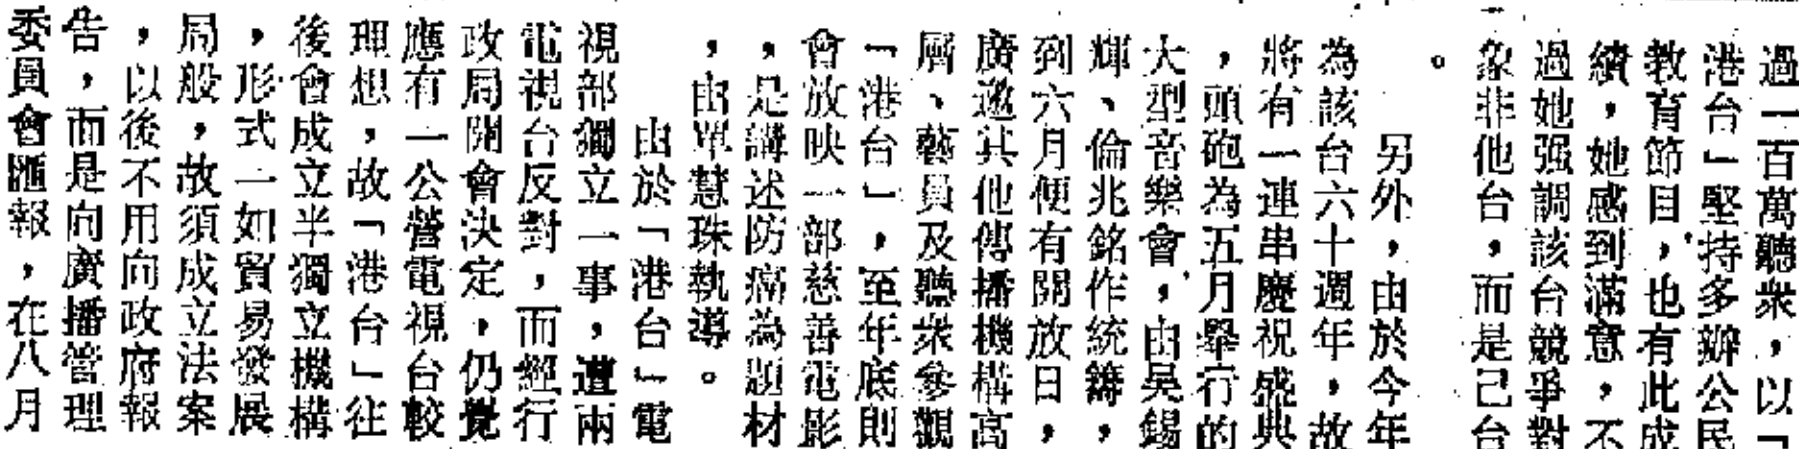 過一百萬聽衆，以「
港台」堅持多辦公民
教育節目，也有此成
績，她感到滿意，不
過她强調該台競爭對
象非他台，而是己台
。
另外，由於今年
為該台六十週年，故
將有一連串慶祝盛典
，頭砲為五月舉行的
大型音樂會，由吳錫
輝、倫兆銘作統籌，
到六月便有開放日，
廣邀其他傳播機構高
層、藝員及聽衆參觀
「港台」，至年底則
會放映一部慈善電影
，是講述防癌為題材
，由單慧珠執導。
由於「港台」電
視部獨立一事，遭兩
電視台反對，而經行
政局開會決定，仍覺
應有一公營電視台較
理想，故「港台」往
後會成立半獨立機構
，形式一如貿易發展
局般，故須成立法案
，以後不用向政府報
告，而是向廣播管理
委員會匯報，在八月